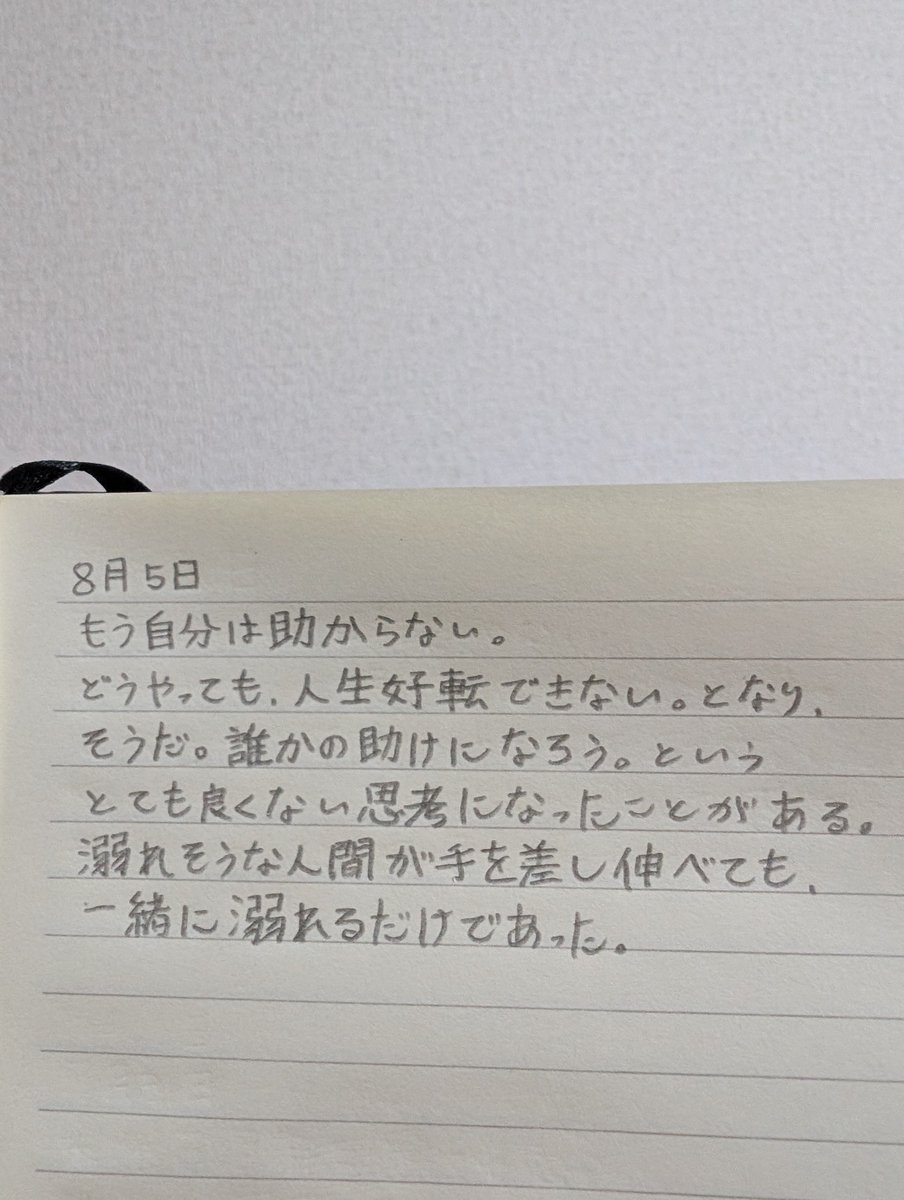 8月5日
もう自分は助からない。
どうやっても、人生好転できない。となり、
そうだ。誰かの助けになろう。という
とても良くない思考になったことがある。
溺れそうな人間が手を差し伸べても、
一緒に溺れるだけであった。